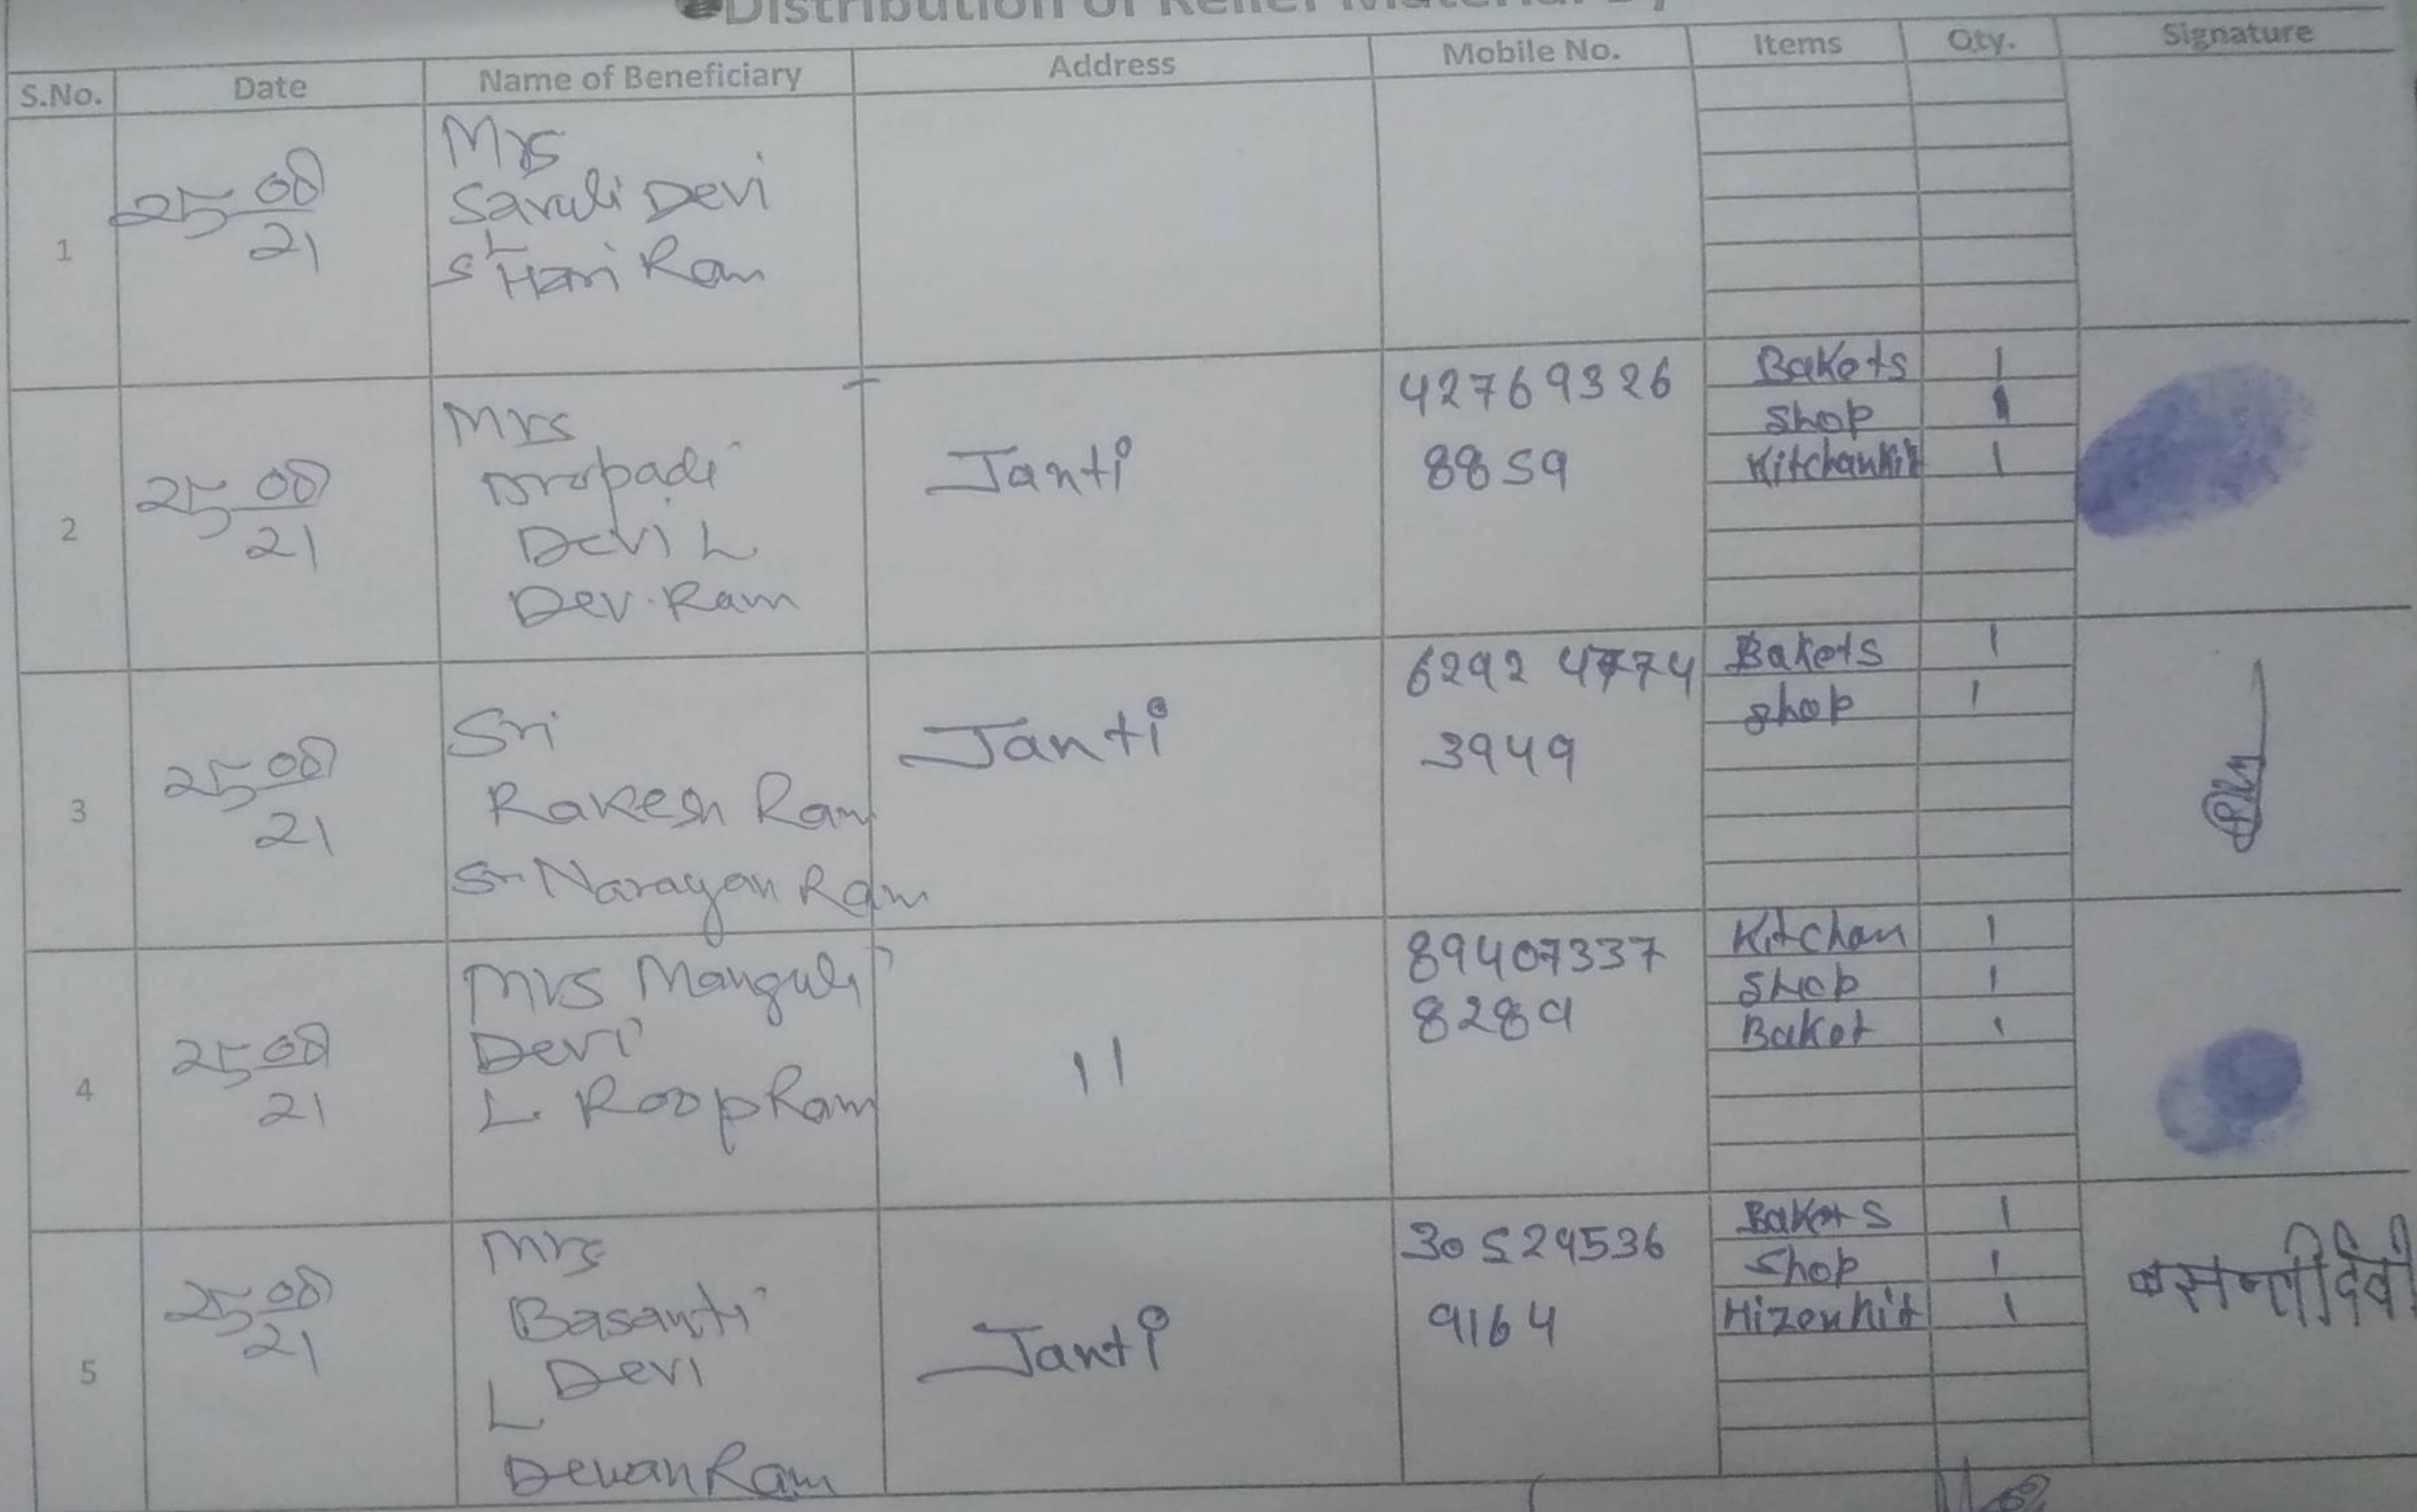 Distribution of Relief Material By
S.No. Date Name of Beneficiary Address Mobile No. Items Qty. Signature
1 25 08 21
Mrs
Saruli Devi
Hari Ram
2 25 08 21
Mrs
Dropadi
Devi L
Dev. Ram
Janti
42769326
8859
Bakets 1
Shop 1
Kitchankit 1
3 25 08 21
Sri
Rakesh Ram
S Narayan Ram
Janti
6292 4774
3949
Bakets 1
shop 1
4 25 08 21
Mrs Manguli
Devi
L Roop Ram
11
89407337
8289
Kitchan 1
Shop 1
Baket 1
5 25 08 21
Mrs
Basanti
L Devi
Dewan Ram
Janti
30529536
9164
Bakets 1
Shop 1
Hizenkit 1
बसन्ती देवी